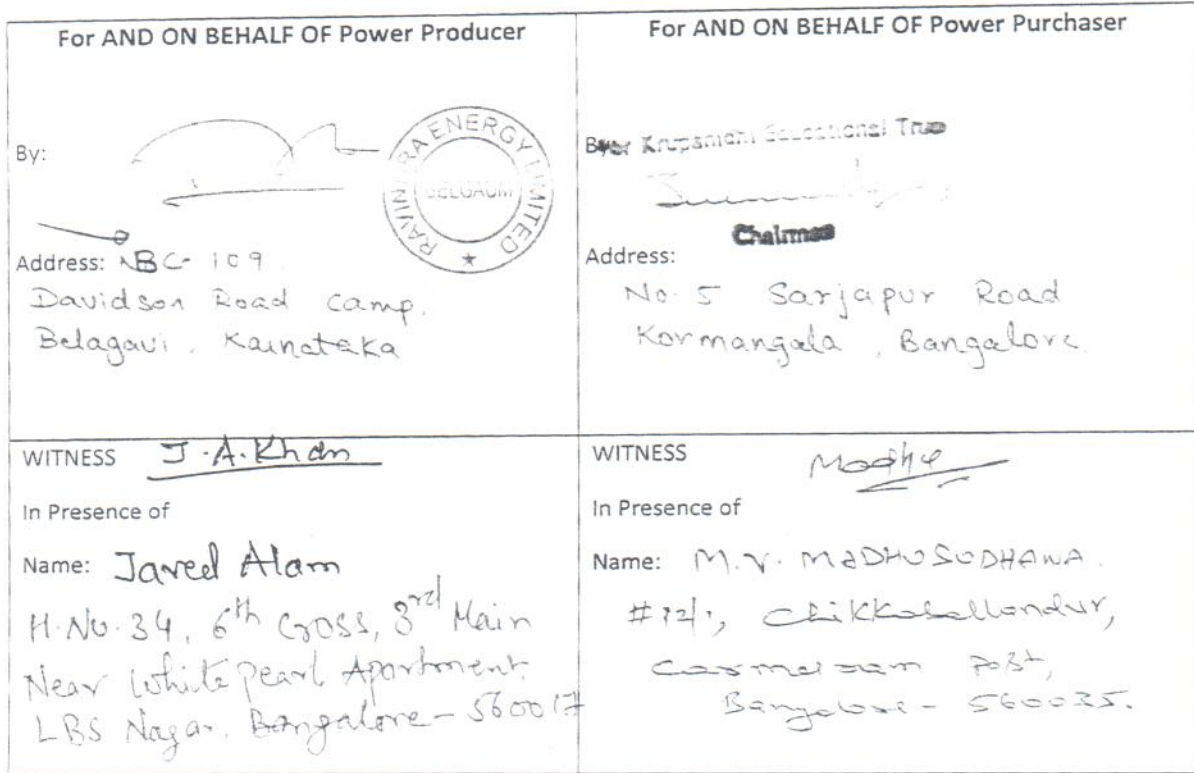 For AND ON BEHALF OF Power Producer
By:
RAVINDRA ENERGY LIMITED
BELGAUM
Address: BC-109
Davidson Road Camp.
Belagavi, Karnataka
For AND ON BEHALF OF Power Purchaser
By: For Krupanidhi Educational Trus
Chairman
Address:
No. 5 Sarjapur Road
Kormangala, Bangalore
WITNESS J.A.Khan
In Presence of
Name: Javed Alam
H.No.34, 6th Cross, 3rd Main
Near White pearl Apartment,
LBS Nagar, Bangalore-560017
WITNESS Madhu
In Presence of
Name: M.V. MADHUSUDHANA.
Chikkabellandur,
Carmelaram Post,
Bangalore- 560035.